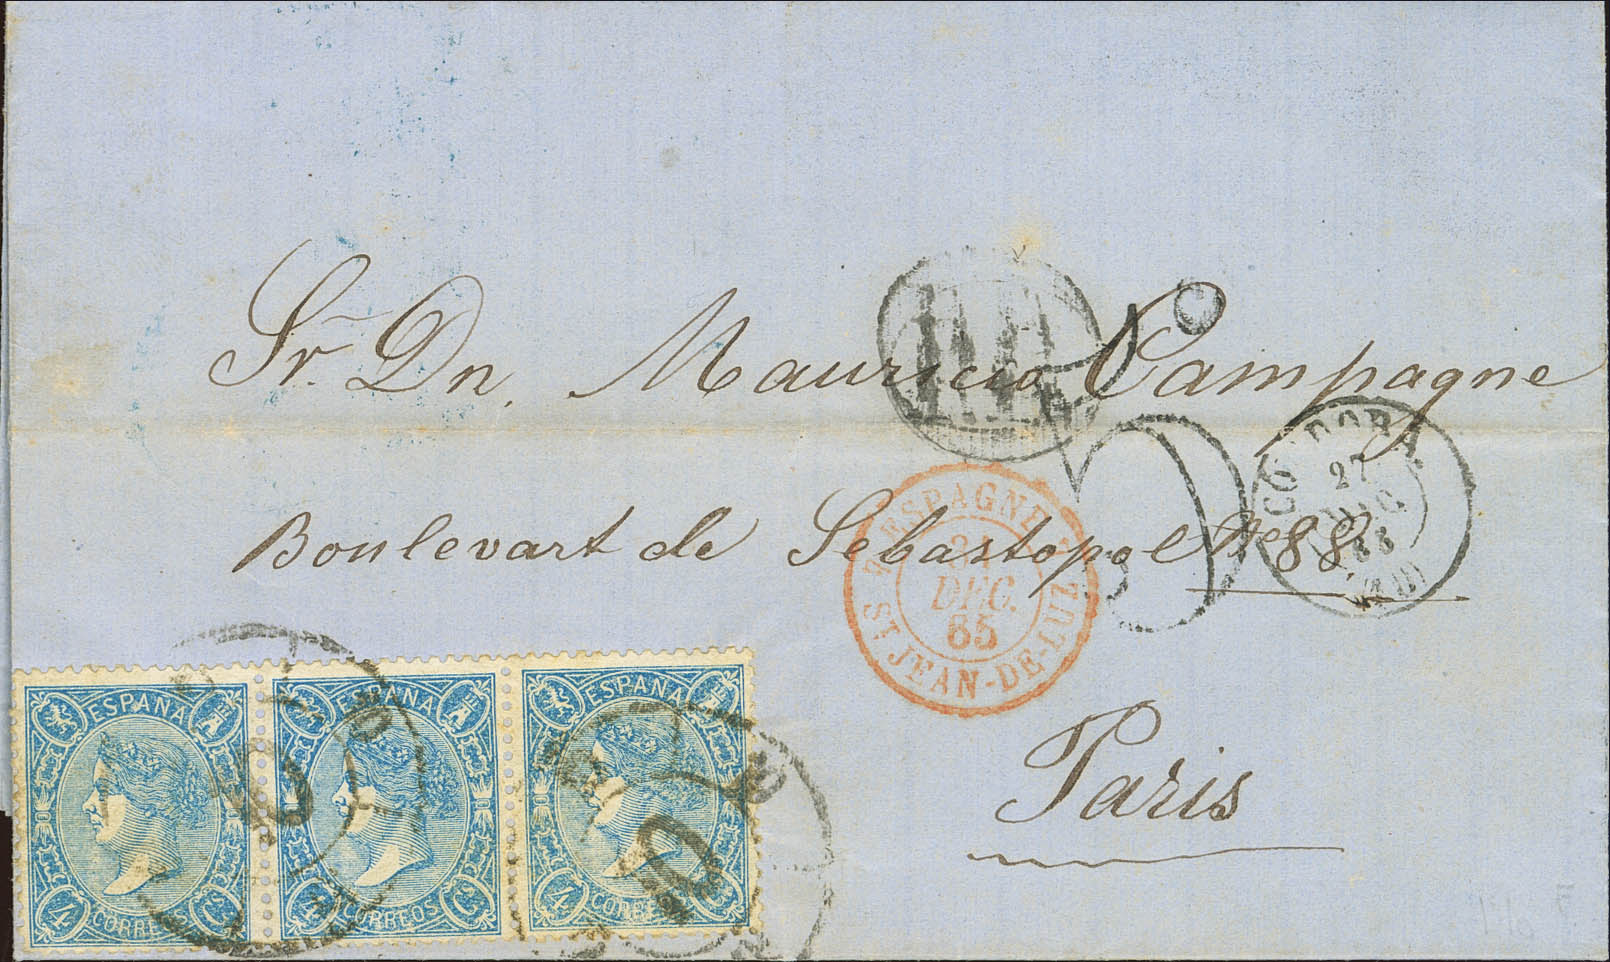 Sr. Dn. Mauricio Campagne
Boulevart de Sebastopol Nº 88.
Paris
CORDOBA.
27
DIC
ESPAGNE
31
DEC.
65
ST JEAN-DE-LUZ
ESPAÑA
4 CORREOS Cs
ESPAÑA
4 CORREOS Cs
ESPAÑA
4 CORREOS Cs